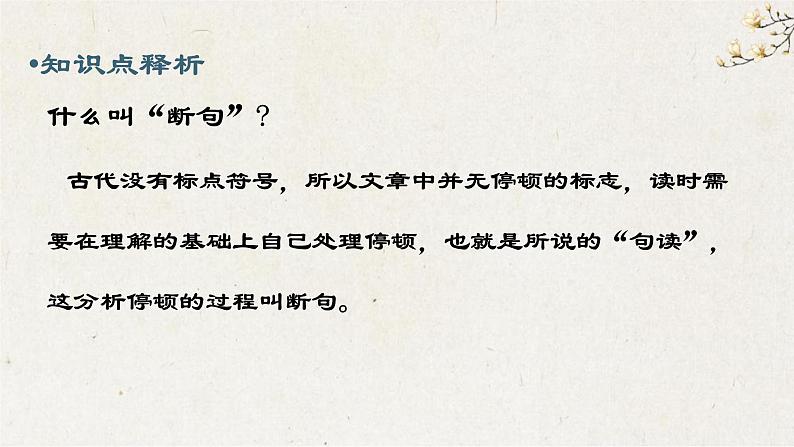 •知识点释析
什么叫“断句”？
古代没有标点符号，所以文章中并无停顿的标志，读时需
要在理解的基础上自己处理停顿，也就是所说的“句读”，
这分析停顿的过程叫断句。